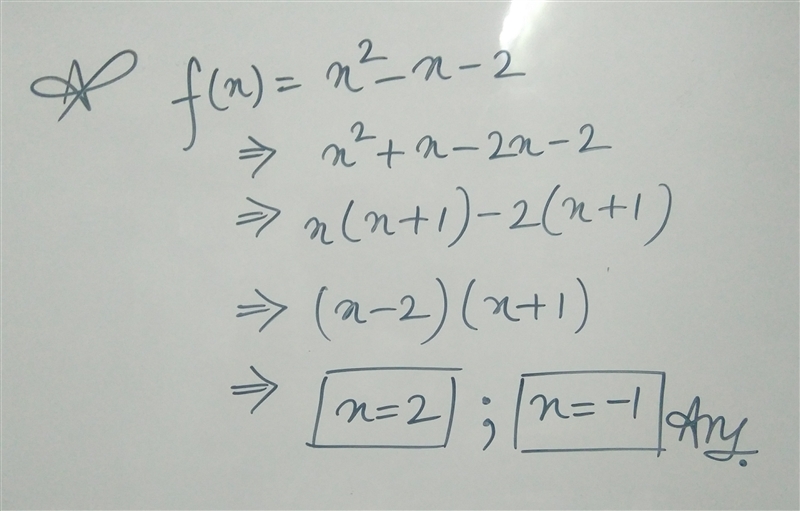 f(x) = x² - x - 2
⇒ x² + x - 2x - 2
⇒ x(x+1) - 2(x+1)
⇒ (x-2)(x+1)
⇒ x=2 ; x=-1 Ans.